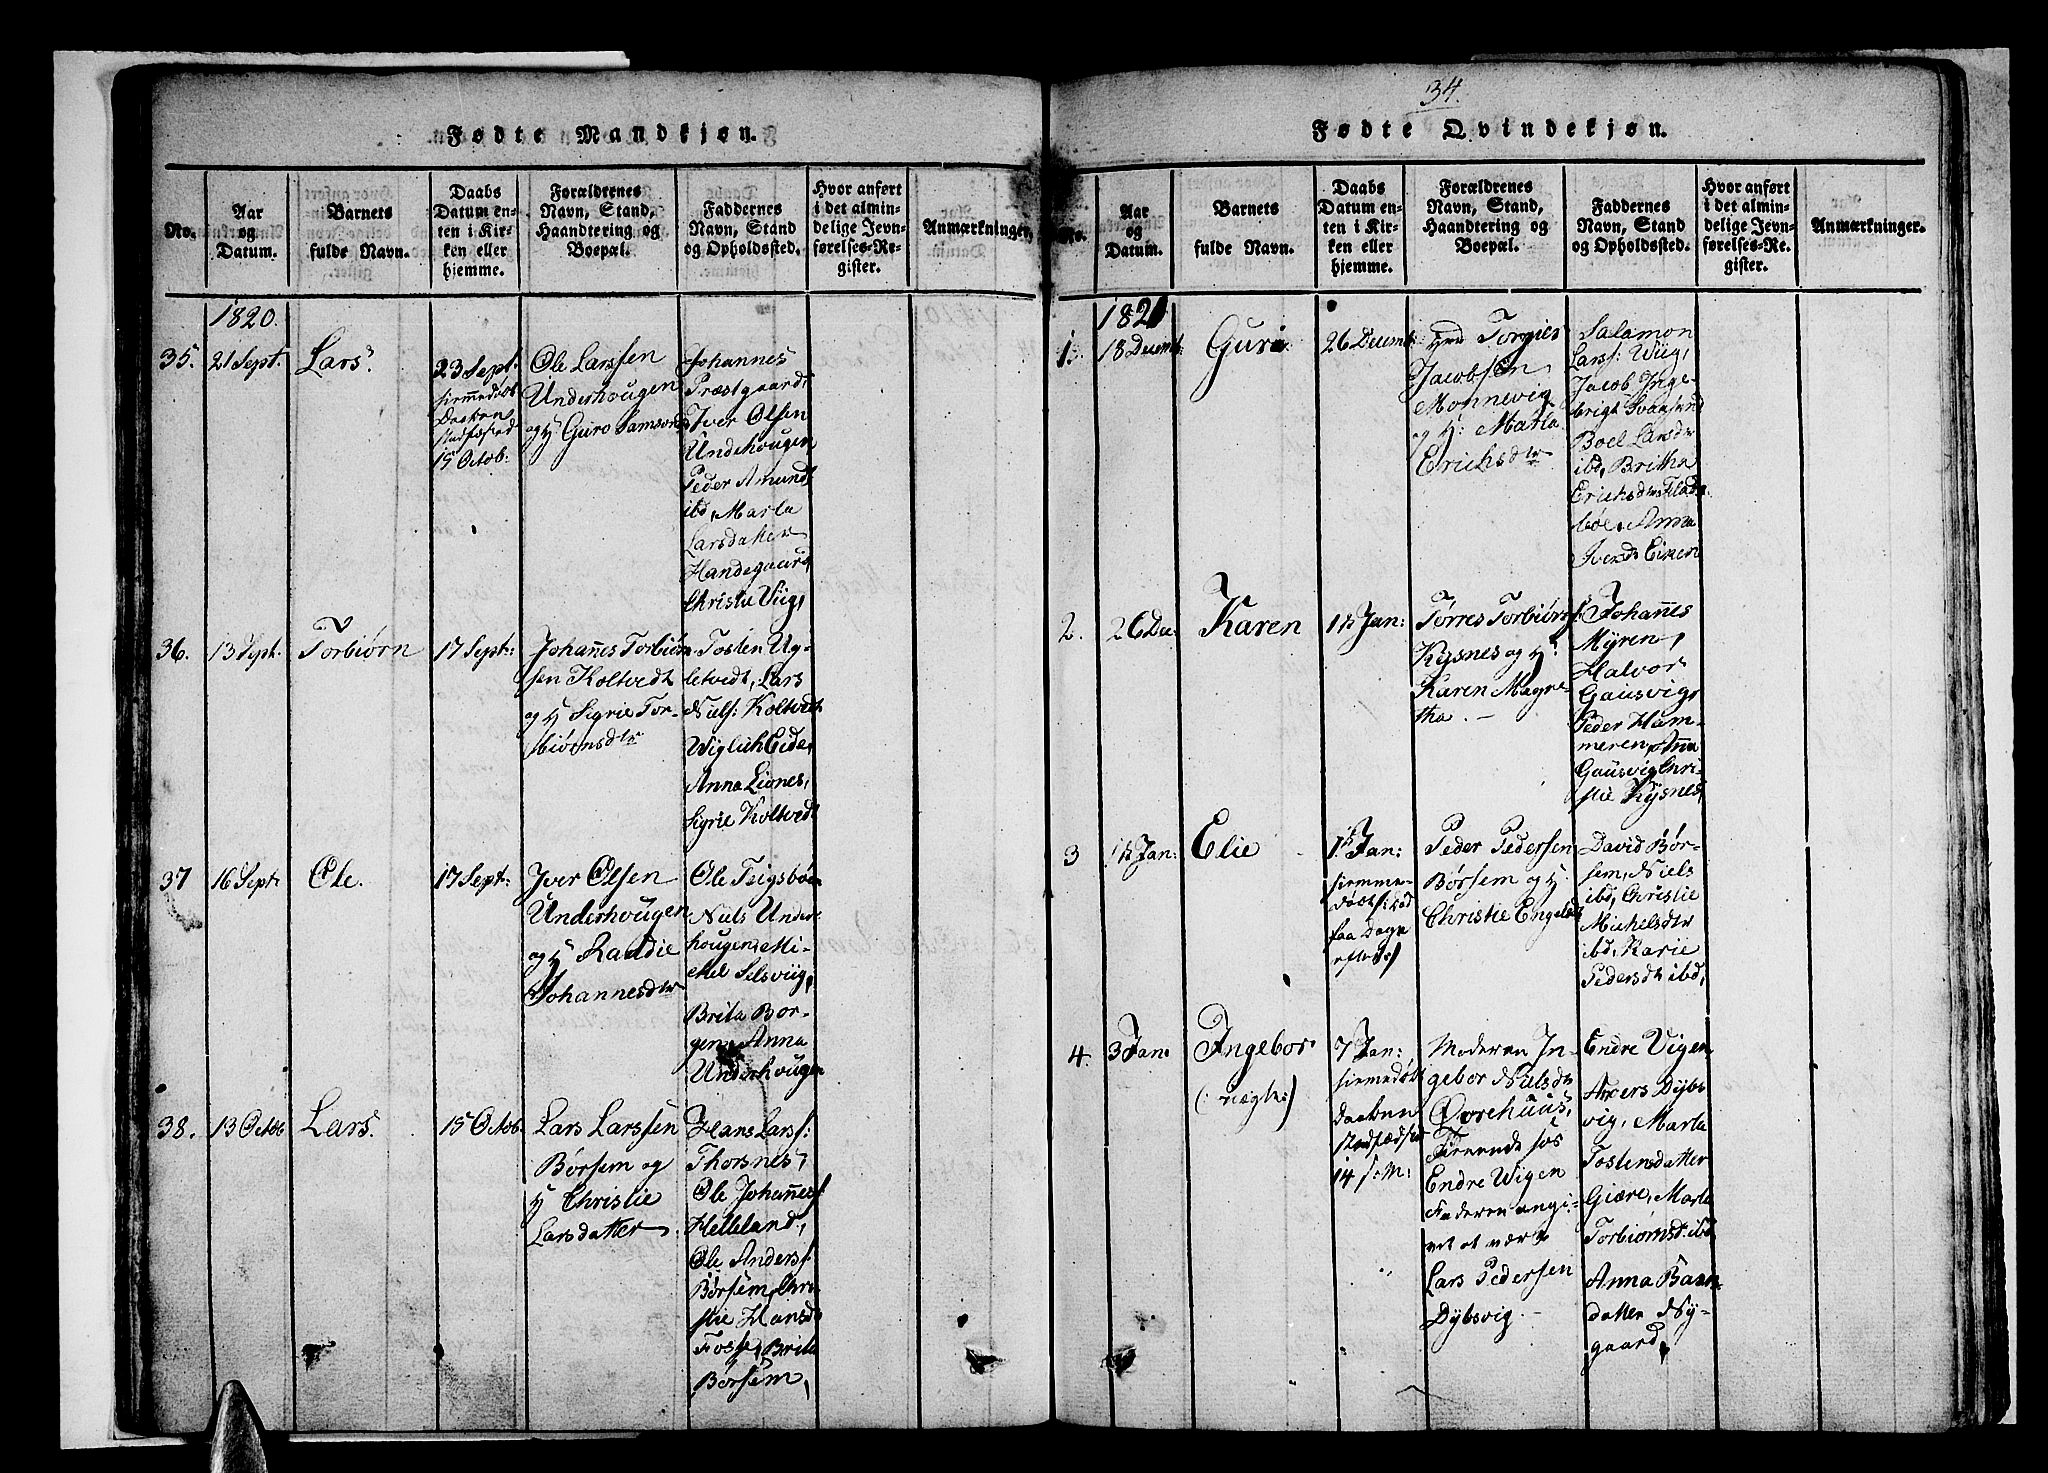 34.
Fødte Mandkjøn.
No.
Aar
og
Datum.
Barnets
fulde Navn.
Daabs
Datum en-
ten i Kir-
ken eller
hjemme.
Forældrenes
Navn, Stand,
Haandtering og
Boepæl.
Faddernes
Navn, Stand
og Opholdssted.
Hvor anført
i det almin-
delige Jevn-
førelses-Re-
gister.
Anmærkninger.
1820.
35.
21 Sept.
Lars.
23 Sept.
15 Octob:
Ole Larssen
Underhougen
og H Guro Samsons
Johannes
Præstgaard,
Iver Olsen
Underhougen
Peder Amunds
ibd, Marta
Larsdatter
Handegaard,
Christie Viig,
36.
13 Sept.
Torbiørn
17 Sept:
Johannes Torbiørn
sen Koltvedt
og H Sigrie Tor-
biørnsdtr
Tosten Ug-
letvedt, Lars
Nils: Koltvedt
Wiglich Eide,
Anna Lionæs,
Sigrie Koltvedt
37
16 Sept.
Ole.
17 Sept:
Iver Olsen
Underhougen
og H Randie
Johannesdtr
Ole Tvigsbøen
Niels Under
hougen, Mi-
chel Selsviig,
Brita Bor-
gen, Anna
Underhougen
38.
13 Octob
Lars.
15 Octob.
Lars Larssen
Børsem og
H Christie
Larsdatter
Hans Lars:
Thorsnes,
Ole Johannes:
Helleland,
Ole Anders:
Børsem, Chri
stie Hansd
Fosse, Brita
Børsem,
Fødte Qvindekjøn.
No.
Aar
og
Datum.
Barnets
fulde Navn.
Daabs
Datum en-
ten i Kir-
ken eller
hjemme.
Forældrenes
Navn, Stand,
Haandtering og
Boepæl.
Faddernes
Navn, Stand
og Opholdssted.
Hvor anført
i det almin-
delige Jevn-
førelses-Re-
gister.
Anmærkninger.
1821
1.
18 Decemb:
Guro
26 Decemb:
Torgies
Jacobsen,
Monnevig
og H: Marta
Erichsdtr
Salamon
Lars: Wiig,
Jacob Inge-
brigt Svaasand
Boel Larsdtr
ibd, Britha
Erichsdtr Flade
bøe, Anna
Iversd Eiken
2.
26 Dec:
Karen
1ste Jan:
Tørres Torbiørns:
Kysnes og H:
Karen Magre-
tha. -
Johannes
Myren,
Halvor
Gausvig,
Peder Ham-
meren, Anna
Gausvig, Chri-
stie Kysnes,
3
1ste Jan:
Elie
1ste Jan:
hiemme-
faa Dage
Peder Pedersen
Børsem og H.
Christie Engelsd
David Bør-
sem, Niels
ibd, Christie
Michelsdtr
ibd, Karie
Pedersdt ibd,
4.
3 Jan:
Ingebor
(: uægte:)
7 Jan:
hiemmedøbt
Daaben
Stadfædstet
14 s: M:
Moderen In-
gebor Nielsdt
Øvrehuus,
Tienende hos
Endre Wigen
Faderen angi-
vet at være
Lars Pedersen
Dybsvig. -
Endre Vigen
Anders Dybs
vig, Marta
Tostensdatter
Giære, Marta
Torbiørnsdt. ibd
Anna Baar
datter Ny-
gaard,